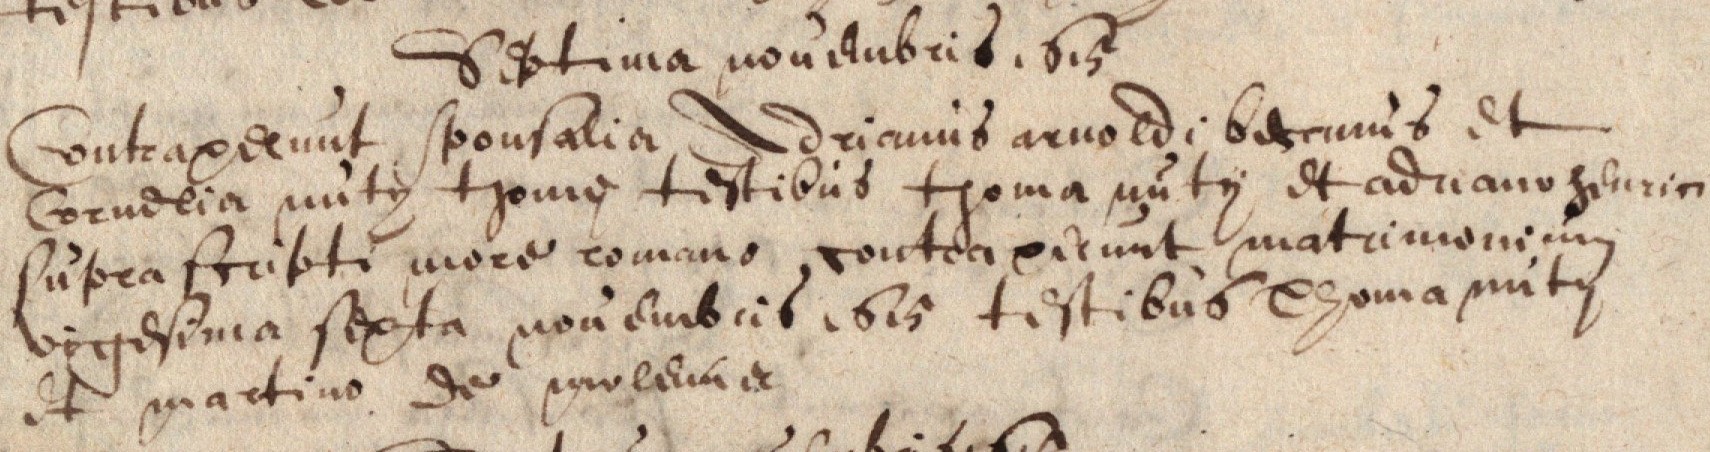 Septima novembris 1615
Contraxerunt sponsalia Adrianus arnoldi et
Cornelia nuty thome testibus thoma nuty et adriano henrici
supra scripti more romano contraxerunt matrimonium
vigesima sexta novembris 1615 testibus Thoma nuty
et martino de molenaer